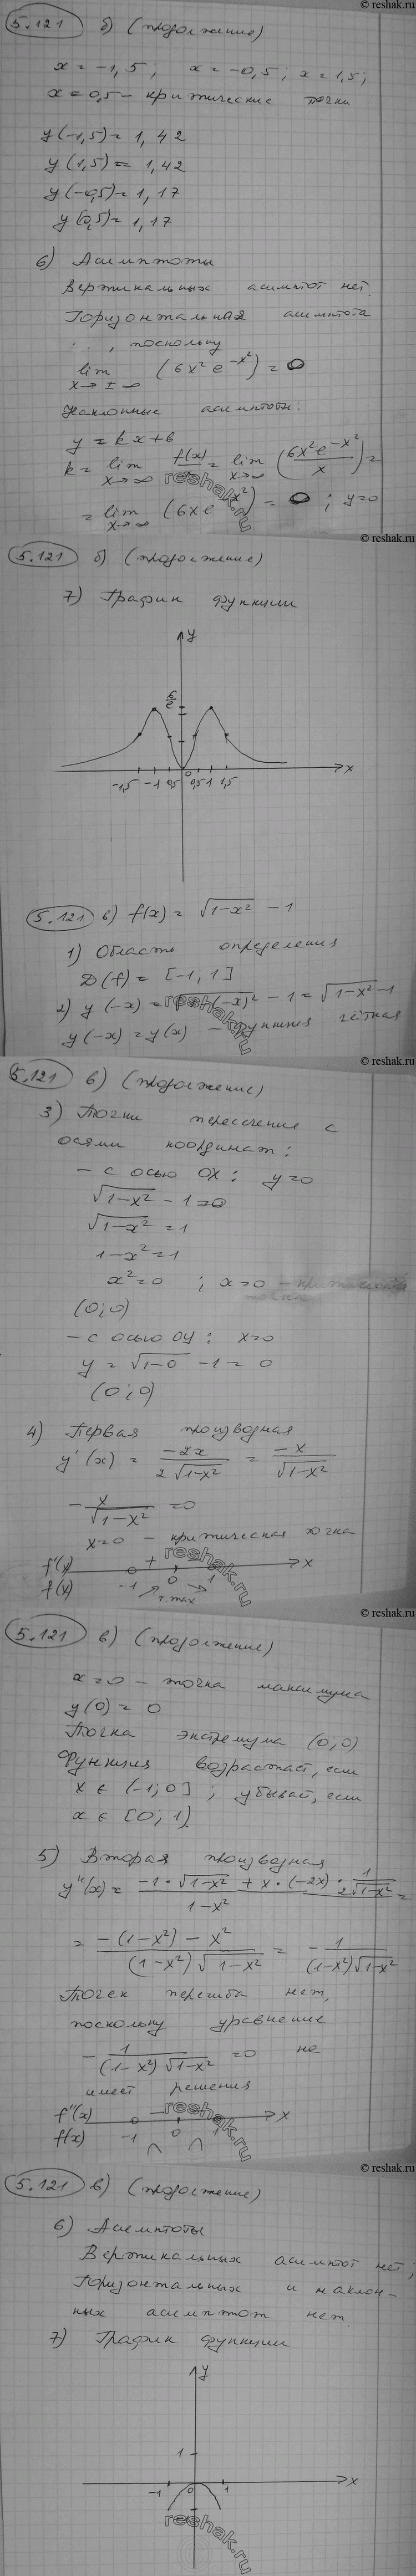 © reshak.ru
5.121 б) (продолжение)
x = -1,5; x = -0,5; x = 1,5;
x = 0,5 - критические точки
y(-1,5) = 1,42
y(1,5) = 1,42
y(-0,5) = 1,17
y(0,5) = 1,17
6) Асимптоты
Вертикальных асимптот нет.
Горизонтальная асимптота
, поскольку
lim x→±∞ (6x² e^(-x²)) = 0
Наклонные асимптоты:
y = kx + b
k = lim x→∞ f(x)/x = lim x→∞ (6x²e^(-x²)/x) =
= lim x→∞ (6x e^(-x²)) = 0; y=0
reshak.ru
© reshak.ru
5.121 б) (продолжение)
7) График функции
y
6/e
-1,5 -1 0,5 0 0,5 1 1,5 x
5.121 в) f(x) = √(1-x²) - 1
1) Область определения
D(f) = [-1; 1]
2) y(-x) = √(1-(-x)²) - 1 = √(1-x²) - 1
y(-x) = y(x) - функция чётная
reshak.ru
© reshak.ru
5.121 в) (продолжение)
3) Точки пересечения с
осями координат:
- с осью OX: y=0
√(1-x²) - 1 = 0
√(1-x²) = 1
1-x² = 1
x² = 0 ; x=0
(0;0)
- с осью OY: x=0
y = √(1-0) - 1 = 0
(0;0)
4) Первая производная
y'(x) = -2x/(2√(1-x²)) = -x/√(1-x²)
- x/√(1-x²) = 0
x=0 - критическая точка
f'(x) + x
f(x) -1 0 1
т.max
reshak.ru
© reshak.ru
5.121 в) (продолжение)
x = 0 - точка максимума
y(0) = 0
Точка экстремума (0;0)
Функция возрастает, если
x ∈ (-1; 0], убывает, если
x ∈ [0; 1)
5) Вторая производная
y''(x) = (-1·√(1-x²) + x·(-2x)·1/(2√(1-x²)))/(1-x²) =
= (-(1-x²) - x²)/((1-x²)√(1-x²)) = - 1/((1-x²)√(1-x²))
Точек перегиба нет,
поскольку уравнение
- 1/((1-x²)√(1-x²)) = 0 не
имеет решения
f''(x) - x
f(x) -1 0 1
reshak.ru
© reshak.ru
5.121 в) (продолжение)
6) Асимптоты
Вертикальных асимптот нет;
Горизонтальных и наклон-
ных асимптот нет.
7) График функции
y
1
-1 0 1 x
reshak.ru